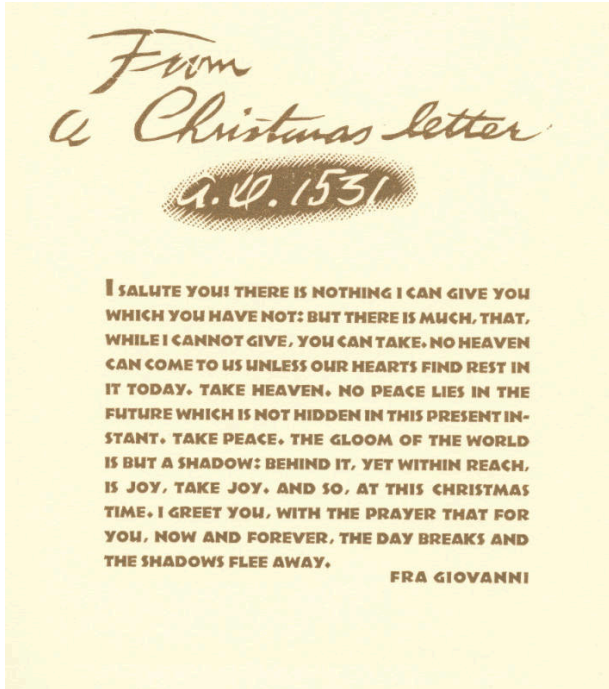 From
a Christmas letter
A.D. 1531
I SALUTE YOU! THERE IS NOTHING I CAN GIVE YOU
WHICH YOU HAVE NOT: BUT THERE IS MUCH, THAT,
WHILE I CANNOT GIVE, YOU CAN TAKE. NO HEAVEN
CAN COME TO US UNLESS OUR HEARTS FIND REST IN
IT TODAY. TAKE HEAVEN. NO PEACE LIES IN THE
FUTURE WHICH IS NOT HIDDEN IN THIS PRESENT IN-
STANT. TAKE PEACE. THE GLOOM OF THE WORLD
IS BUT A SHADOW: BEHIND IT, YET WITHIN REACH,
IS JOY, TAKE JOY. AND SO, AT THIS CHRISTMAS
TIME. I GREET YOU, WITH THE PRAYER THAT FOR
YOU, NOW AND FOREVER, THE DAY BREAKS AND
THE SHADOWS FLEE AWAY.
FRA GIOVANNI